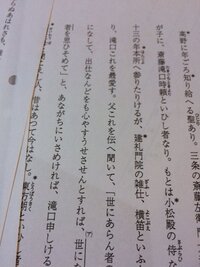 高野に年ごろ知り給へる聖あり。三条の斎藤左衛門
が子に、斎藤滝口時頼といひし者なり。もとは小松殿の侍な
十三の年本所へ参りたりけるが、建礼門院の雑仕、横笛といふ
り、滝口これを最愛す。父これを伝へ聞いて、「世にあらん者
になして、出仕なんどをも心やすうせさせんとすれば、世にな
者を思ひそめて」と、あながちにいさめければ、滝口申しける
人、昔はあつて今はなし。東方朔といひし
らのあはれさも、